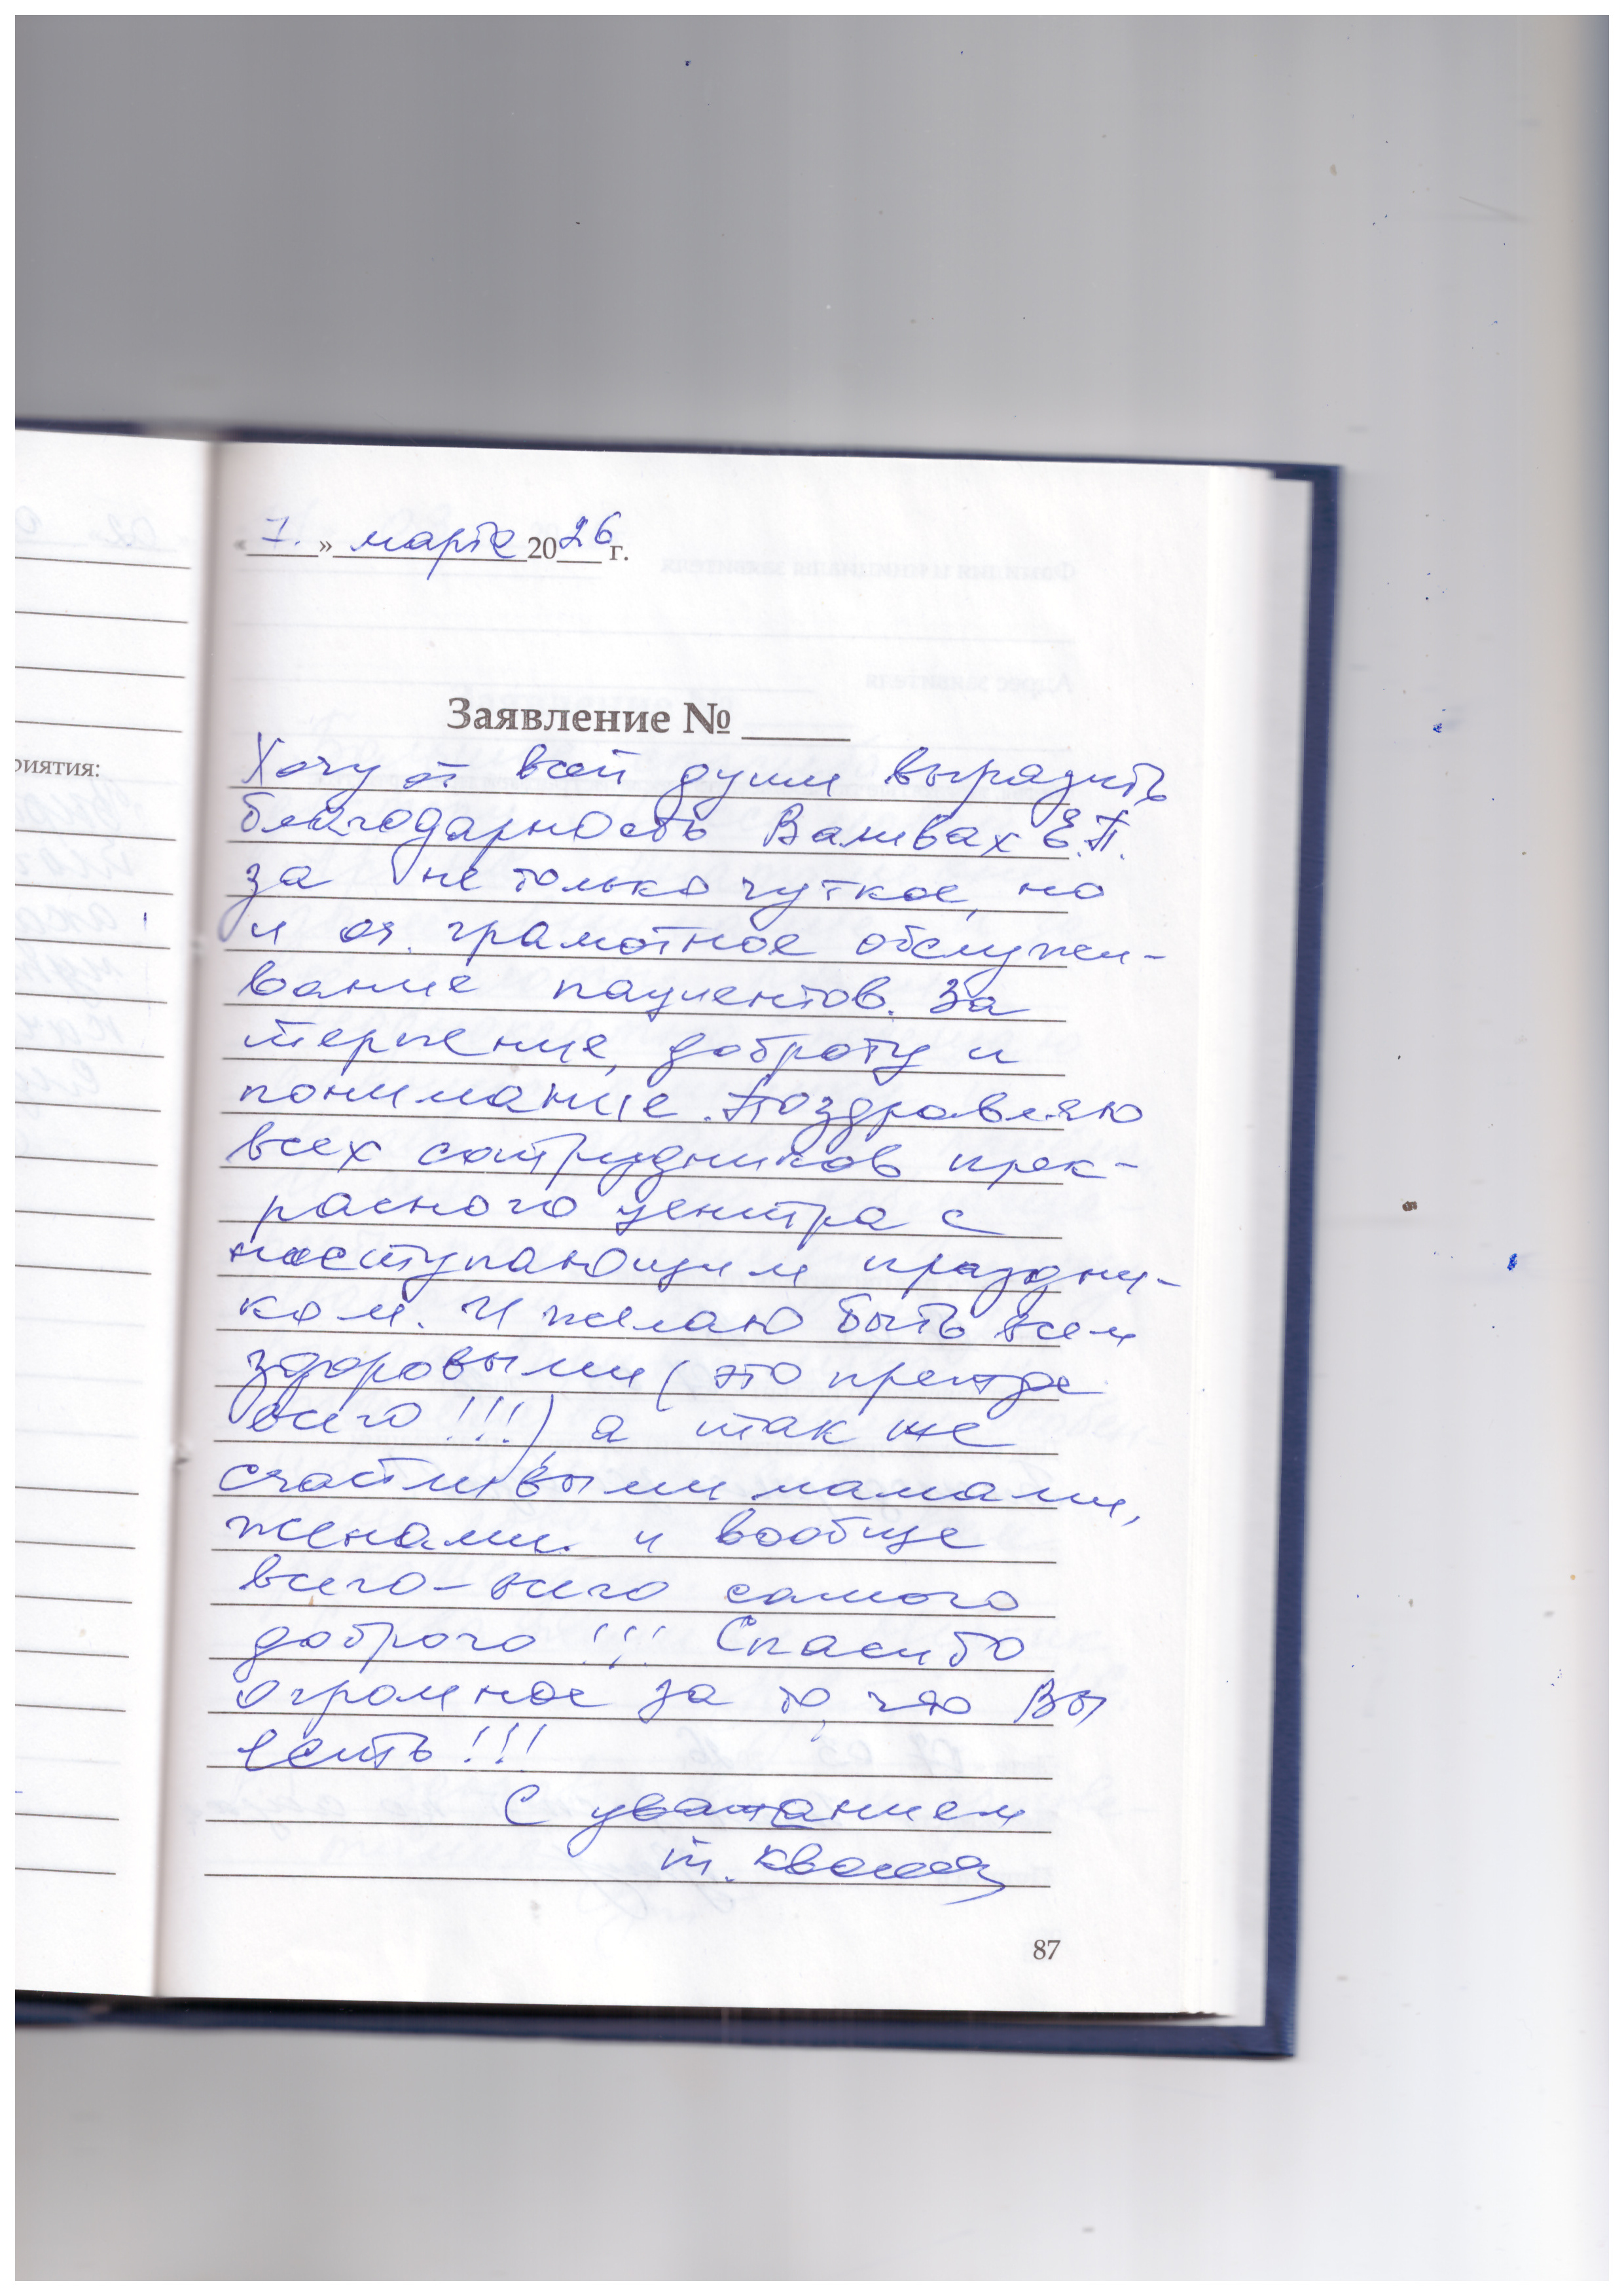 « 1. » марта 2026 г.
Заявление № ____
риятия:
Хочу от всей души выразить
благодарность Валивах Е.П.
за не только чуткое, но
и оч. грамотное обслужи-
вание пациентов. За
терпение, доброту и
понимание. Поздравляю
всех сотрудников прек-
расного центра с
наступающим праздни-
ком. И желаю быть всем
здоровыми (это прежде
всего!!!), а так же
счастливыми мамами,
женами и вообще
всего-всего самого
доброго!!! Спасибо
огромное за то, что Вы
есть!!!
С уважанием
т.
87